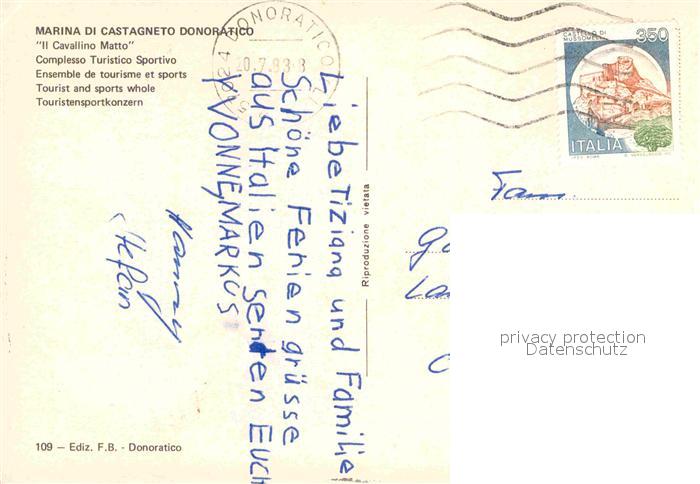 MARINA DI CASTAGNETO DONORATICO
"Il Cavallino Matto"
Complesso Turistico Sportivo
Ensemble de tourisme et sports
Tourist and sports whole
Touristensportkonzern
DONORATICO
20.7.93
CASTELLO DI MUSSOMELI
350
ITALIA
Liebe Tiziana und Familie
Schöne Ferien grüsse
aus Italien senten Euch
YVONNE, MARKUS
Stefan
Riproduzione vietata
Fam.
privacy protection
Datenschutz
109 — Ediz. F.B. - Donoratico